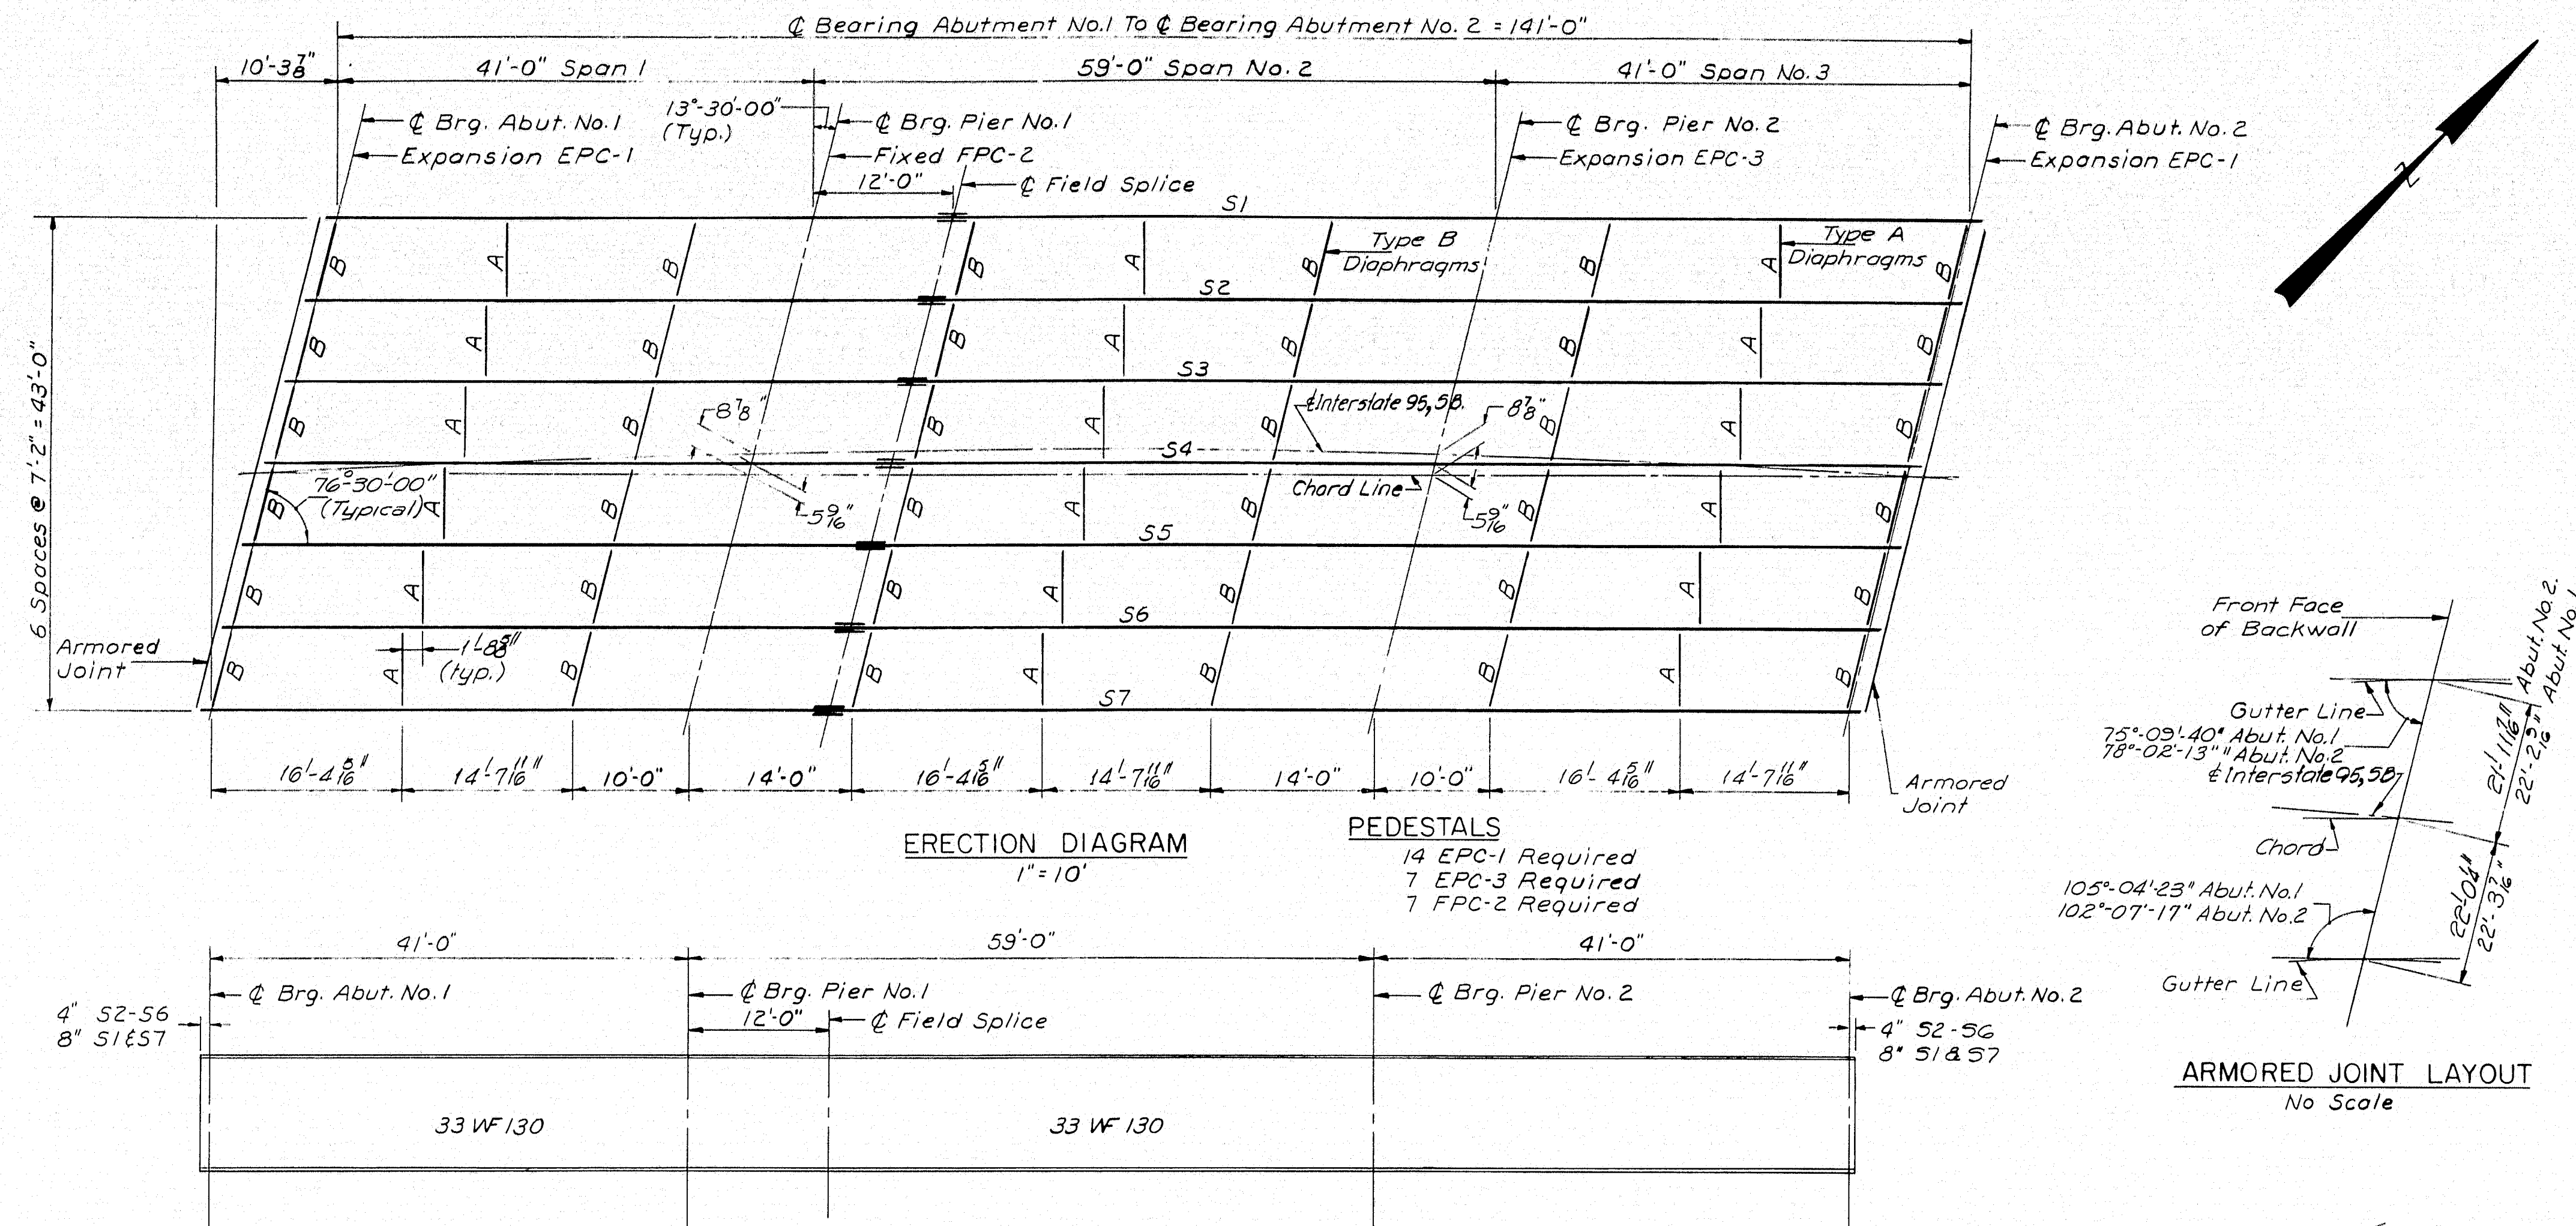 ℄ Bearing Abutment No.1 To ℄ Bearing Abutment No. 2 = 141'-0"
10'-3 7/8"
41'-0" Span 1
59'-0" Span No. 2
41'-0" Span No. 3
13°-30'-00"
(Typ.)
℄ Brg. Abut. No. 1
Expansion EPC-1
℄ Brg. Pier No. 1
Fixed FPC-2
12'-0"
℄ Field Splice
℄ Brg. Pier No. 2
Expansion EPC-3
℄ Brg. Abut. No. 2
Expansion EPC-1
S1
B A B B A B B A B
Type B
Diaphragms
Type A
Diaphragms
S2
B A B B A B B A B
S3
B A B B A B B A B
8 7/8"
℄ Interstate 95, SB.
8 7/8"
S4
76°-30'-00"
(Typical)
B A B B A B B A B
5 9/16"
Chord Line
5 9/16"
S5
B A B B A B B A B
S6
1'-8 5/8"
(typ.)
B A B B A B B A B
S7
6 Spaces @ 7'-2" = 43'-0"
Armored
Joint
16'-4 5/16"
14'-7 11/16"
10'-0"
14'-0"
16'-4 5/16"
14'-7 11/16"
14'-0"
10'-0"
16'-4 5/16"
14'-7 11/16"
Armored
Joint
ERECTION DIAGRAM
1" = 10'
PEDESTALS
14 EPC-1 Required
7 EPC-3 Required
7 FPC-2 Required
41'-0"
59'-0"
41'-0"
℄ Brg. Abut. No. 1
℄ Brg. Pier No. 1
12'-0"
℄ Field Splice
℄ Brg. Pier No. 2
℄ Brg. Abut. No. 2
4" S2-S6
8" S1 & S7
4" S2-S6
8" S1 & S7
33 WF 130
33 WF 130
N
Front Face
of Backwall
Gutter Line
75°-09'-40" Abut. No.1
78°-02'-13" Abut. No.2
℄ Interstate 95, SB
Chord
105°-04'-23" Abut. No.1
102°-07'-17" Abut. No.2
Gutter Line
21'-11 7/16" Abut. No. 2.
22'-2 9/16" Abut. No. 1
22'-0 1/4"
22'-3 7/16"
ARMORED JOINT LAYOUT
No Scale